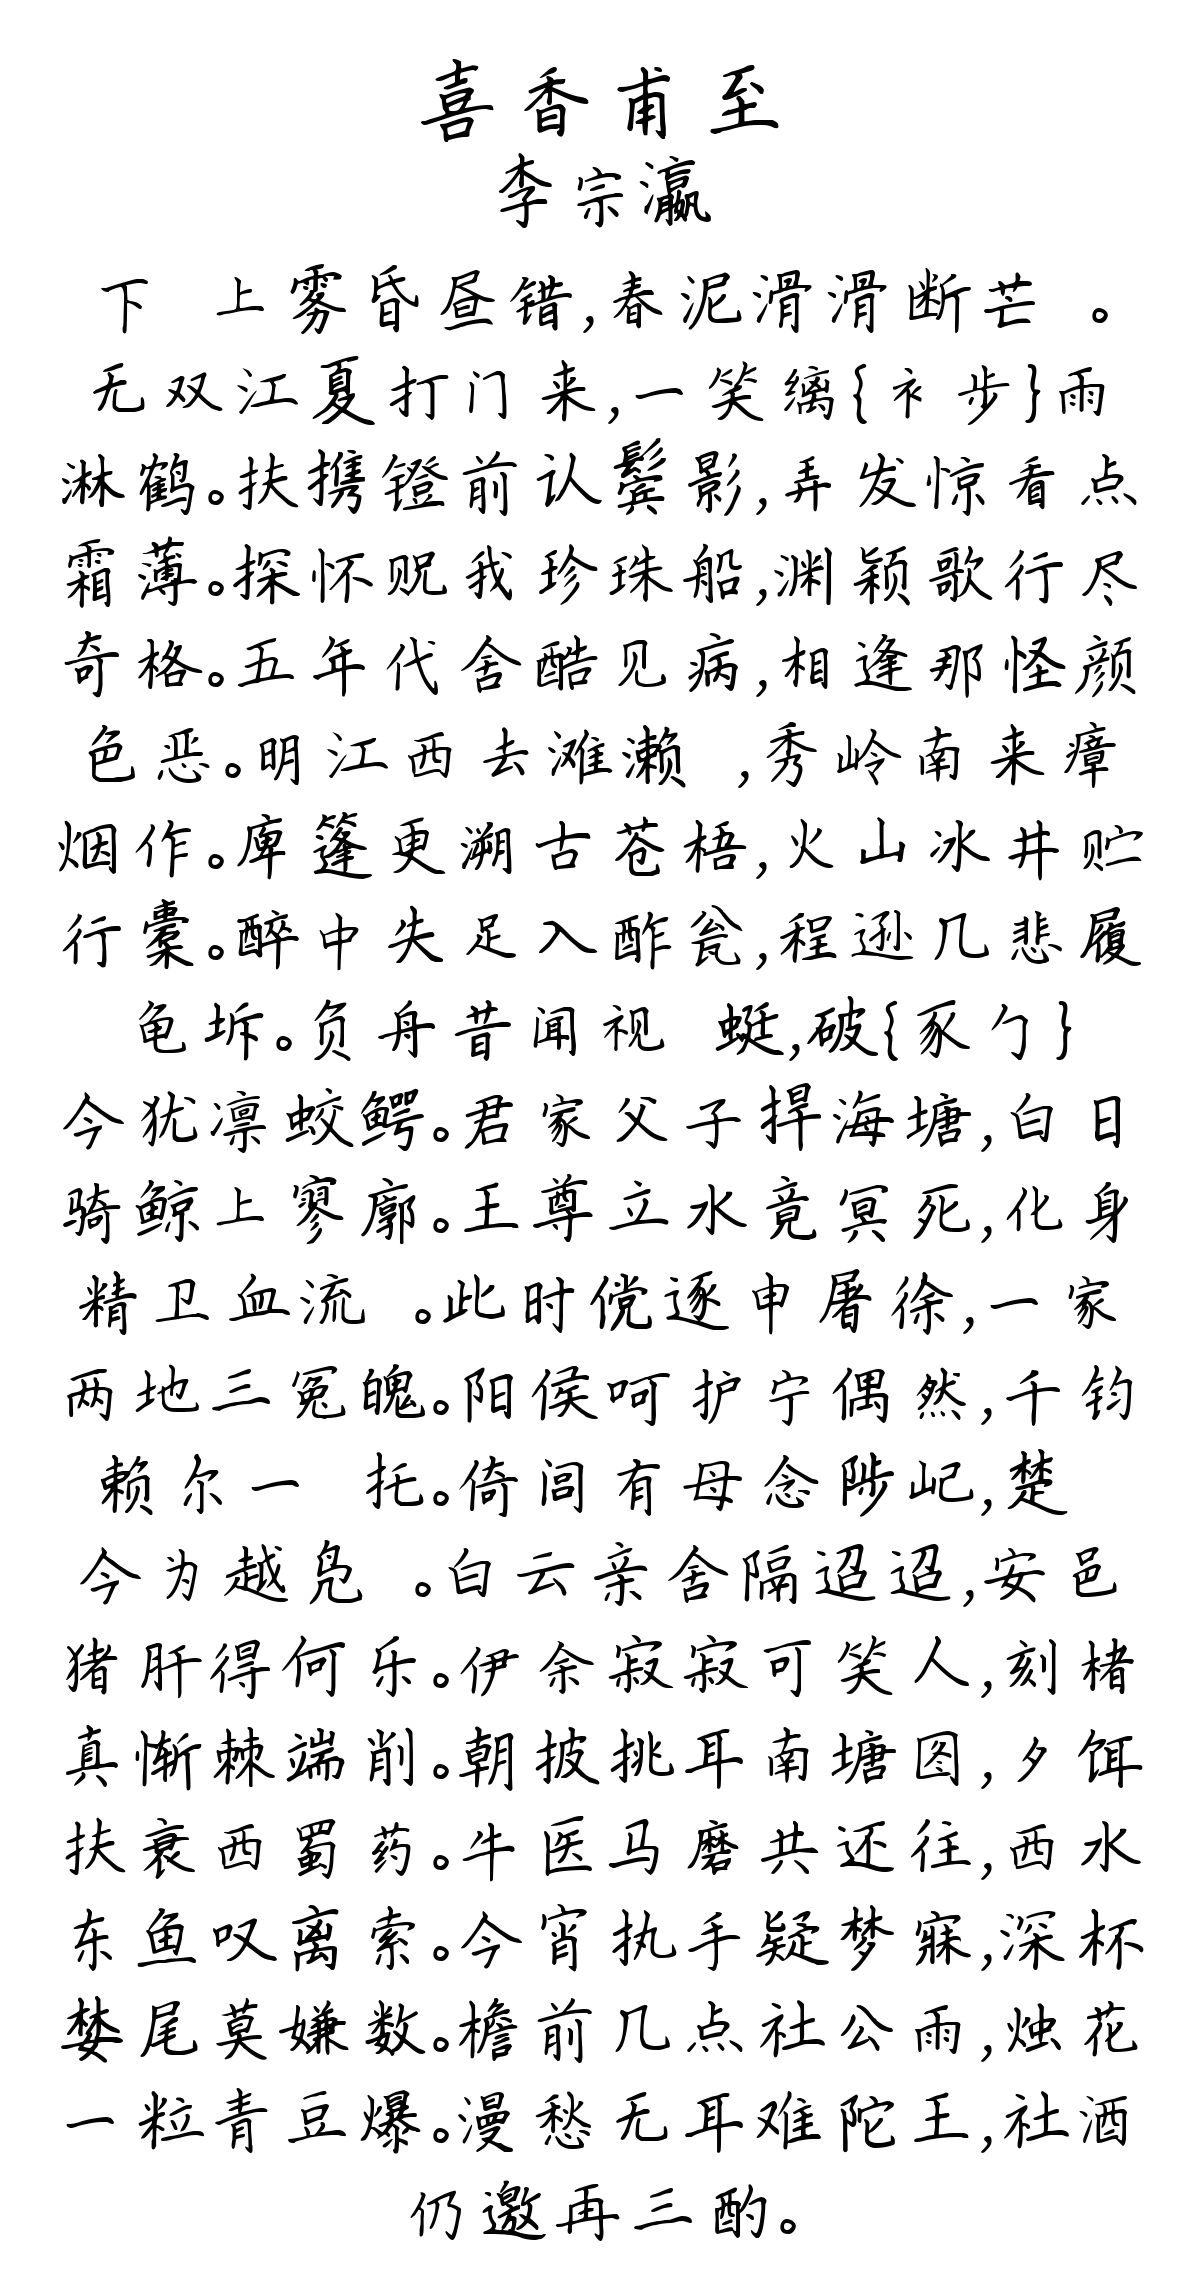 喜香甫至
李宗瀛
下 上雾昏昼错,春泥滑滑断芒 。
无双江夏打门来,一笑缡{衤步}雨
淋鹤。扶携镫前认鬓影,弄发惊看点
霜薄。探怀贶我珍珠船,渊颖歌行尽
奇格。五年代舍酷见病,相逢那怪颜
色恶。明江西去滩濑 ,秀岭南来瘴
烟作。庳篷更溯古苍梧,火山冰井贮
行橐。醉中失足入酢瓮,程逊几悲履
龟坼。负舟昔闻视 蜓,破{豕勹}
今犹凛蛟鳄。君家父子捍海塘,白日
骑鲸上寥廓。王尊立水竟冥死,化身
精卫血流 。此时傥逐申屠徐,一家
两地三冤魄。阳侯呵护宁偶然,千钧
赖尔一 托。倚闾有母念陟屺,楚
今为越凫 。白云亲舍隔迢迢,安邑
猪肝得何乐。伊余寂寂可笑人,刻楮
真惭棘端削。朝披挑耳南塘图,夕饵
扶衰西蜀药。牛医马磨共还往,西水
东鱼叹离索。今宵执手疑梦寐,深杯
婪尾莫嫌数。檐前几点社公雨,烛花
一粒青豆爆。漫愁无耳难陀王,社酒
仍邀再三酌。